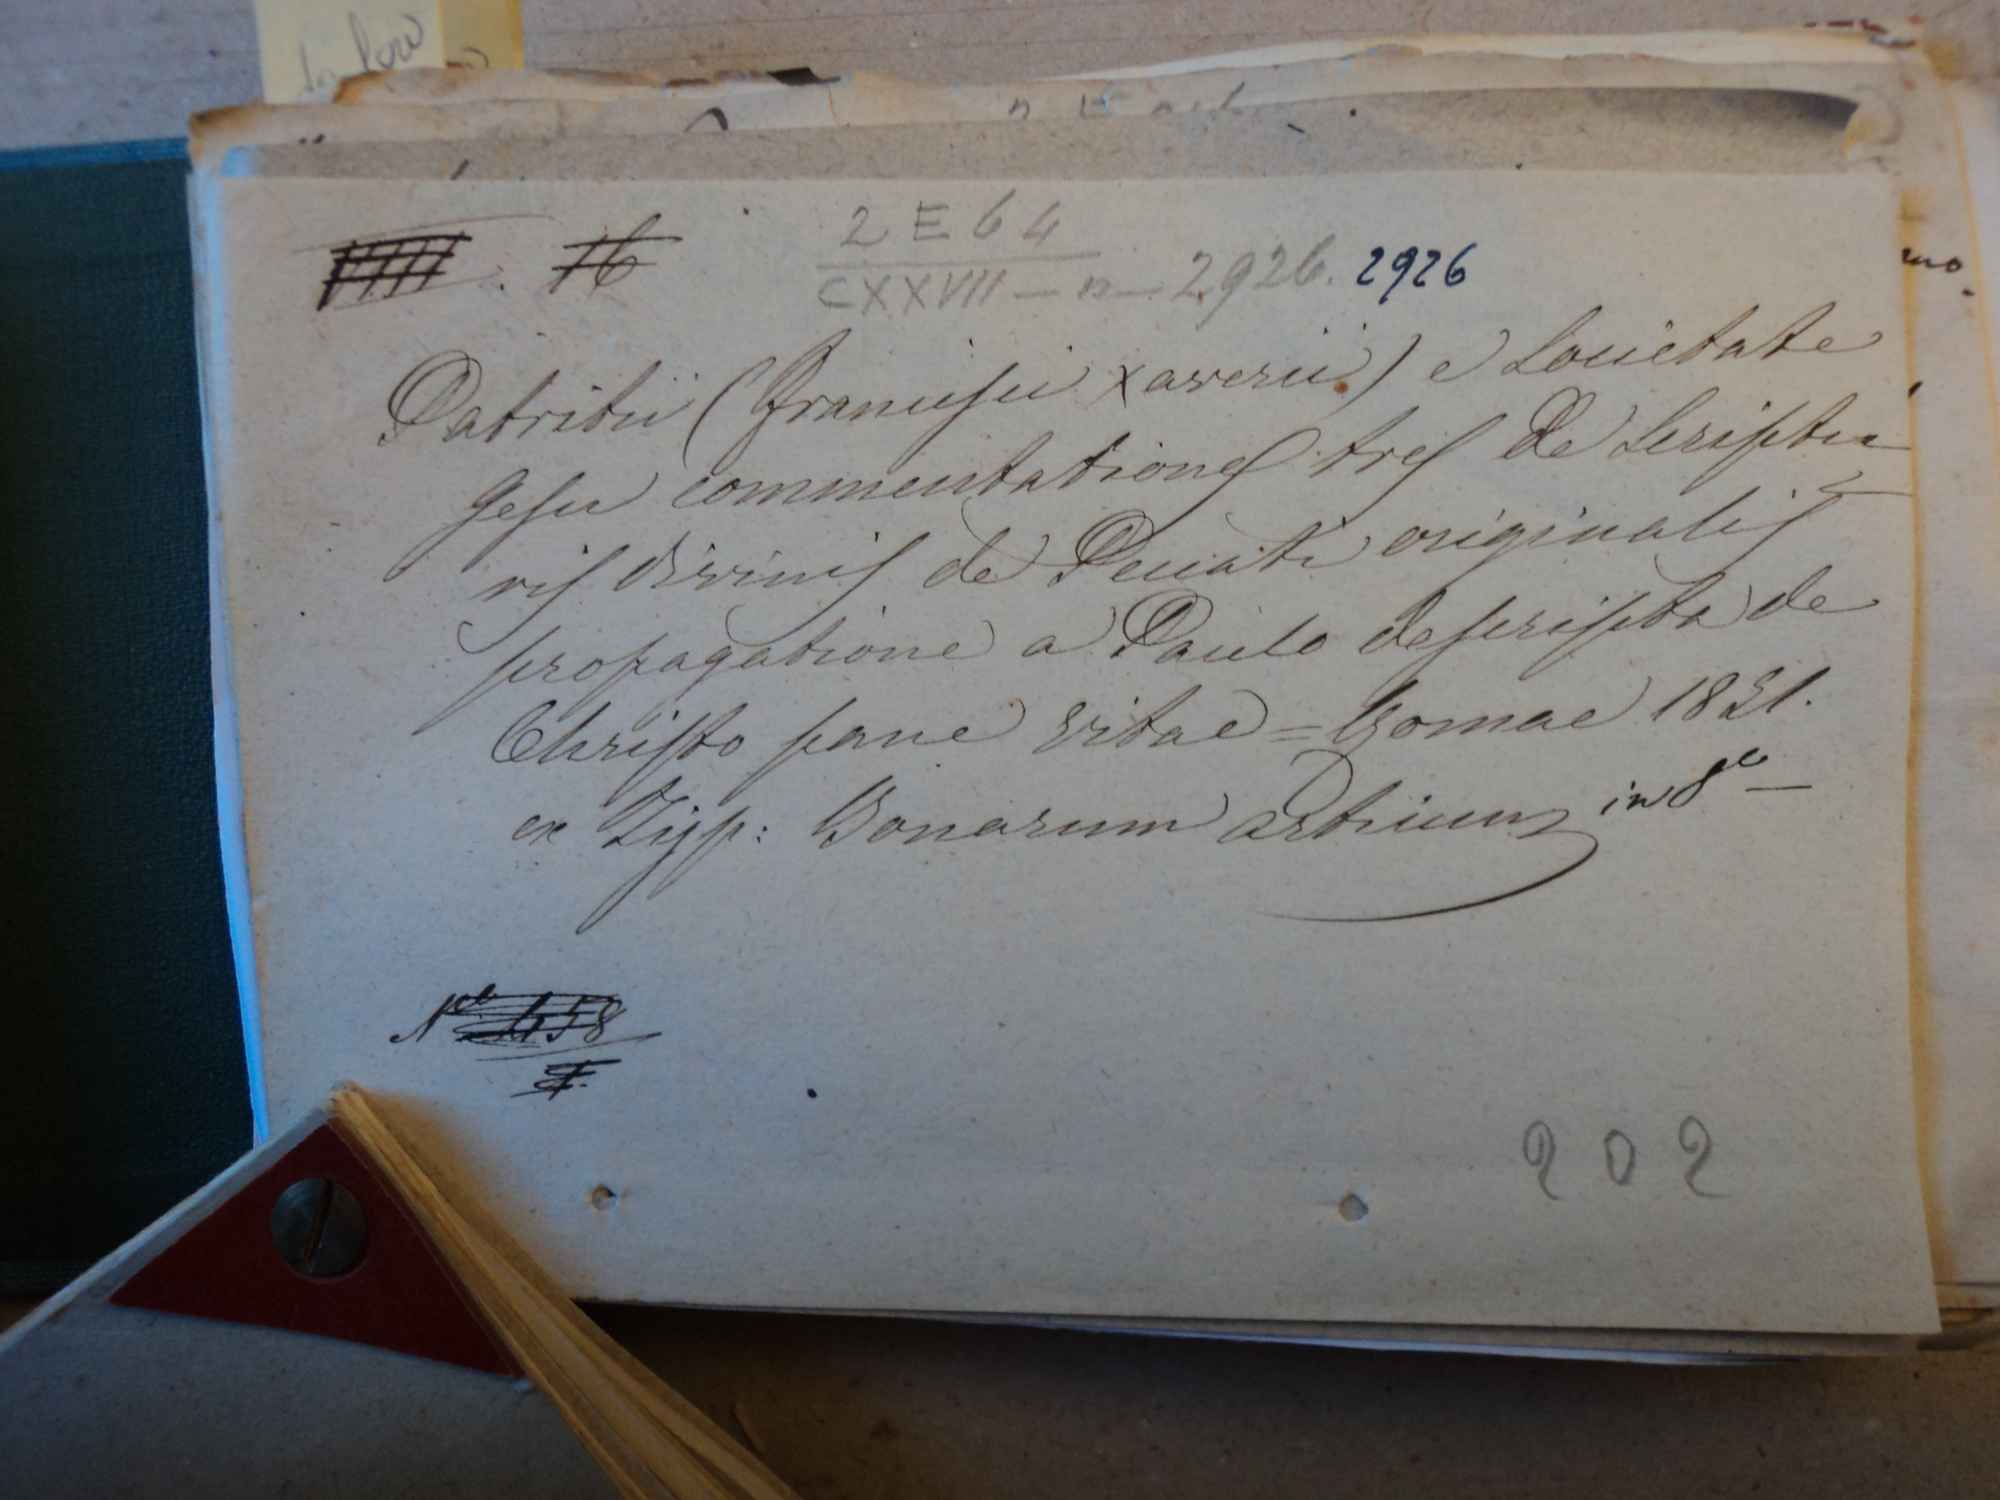 16
2 E 64
CXXVII - n - 2926. 2926
Patritii (Francisci Xaverii) e Societate
Jesu commentationes tres de Scriptu
ris divinis de Peccati originalis
propagatione a Paulo descripta de
Christo pane vitae = Romae 1851.
ex Typ: Bonarum Artium in 8º
Nº 458
202